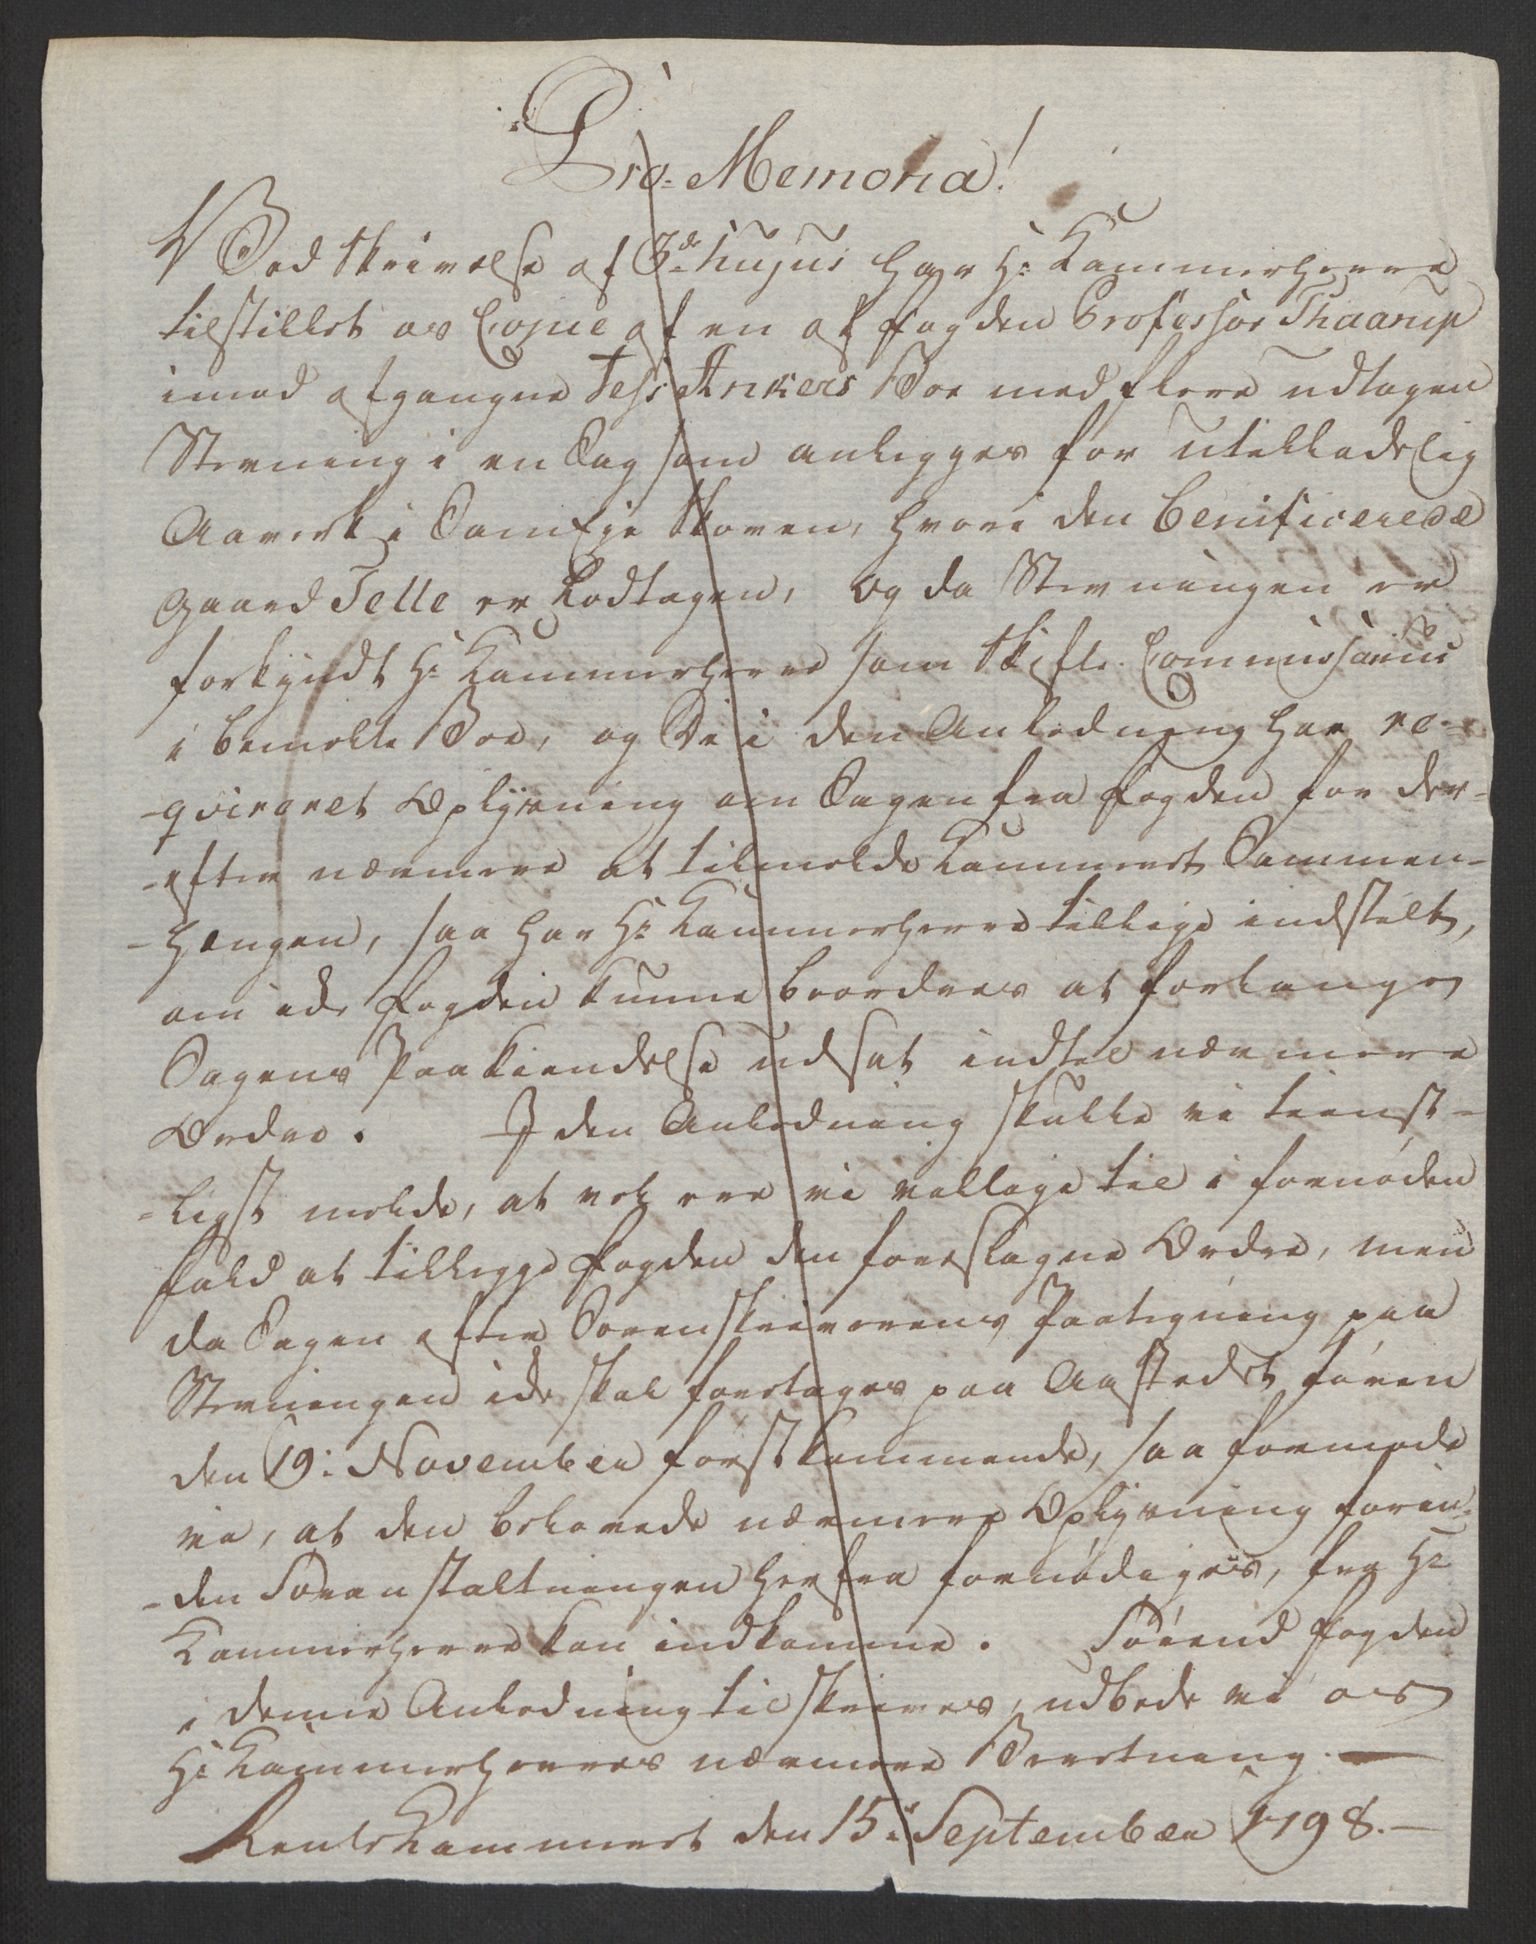 Pro-Memoria!
Ved Skrivelse af 3de hujus har Hr: Kammerherre
tilstillet os Copie af en af Fogden Professor Thaarup
imod afgangne Jess Ankers Boe med flere udtagen
Stevning i en Sag som anlegges for utilladelig
Aavirk i SamEje Skoven, hvori den Benificerede
Gaard Telle er Lodtagen, og da Stevningen er
forkyndt Hr: Kammerherre som Skifte Commissarius
i bemelte Boe, og De i den Anledning har re-
-qvireret Oplysning om Sagen fra Fogden for der-
-efter nærmere at tilmelde Kammeret Sammen-
-hængen, saa har Hr: Kammerherre tillige indstilt,
om icke Fogden kunne beordres at forlange
Sagens Paakiendelse udsat indtil nærmere
Ordre. I den Anledning skulle vi tienst-
-ligst melde, at vel ere vi villige til i fornøden
Fald at tillegge Fogden den foreslagne Ordre, men
da Sagen efter Sorenskriverens Paategning paa
Stevningen icke skal foretages paa Aastedet føren
den 19: November førstkommende, saa formode
vi, at den behøvede nærmere Oplysning forin-
-den Foranstaltningen herfra fornødiges, fra Hr:
Kammerherre kan indkomme. Førend Fogden
i denne Anledning tilskrives, udbede vi os
Hr: Kammerherres nærmere Beretning.
RenteKammeret den 15de September 1798.